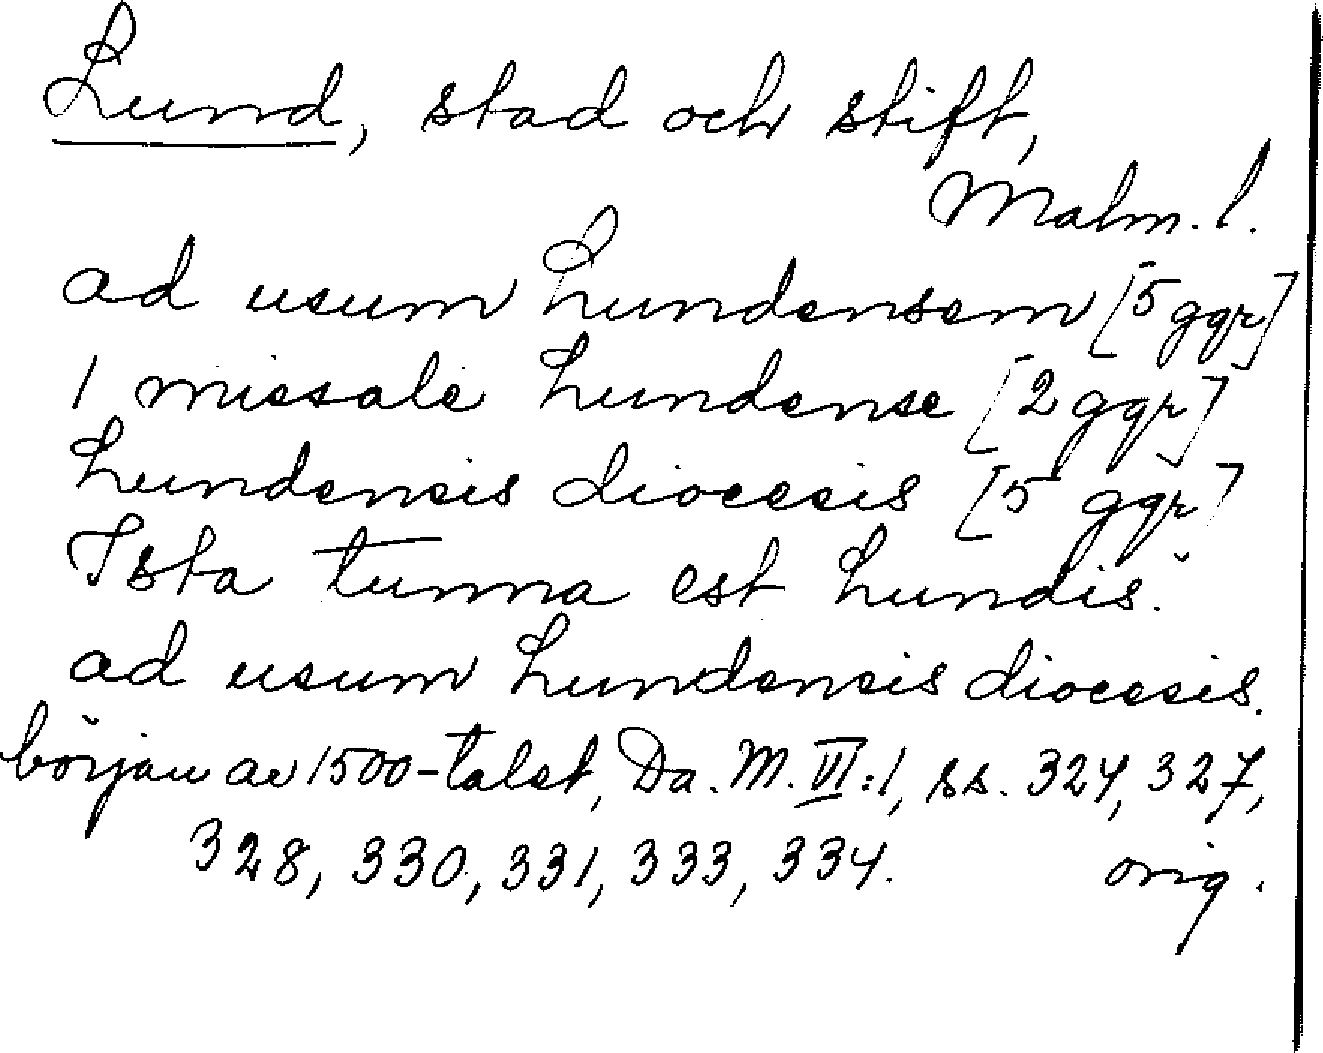 Lund, stad och stift,
Malm. l.
ad usum Lundensem [5 ggr]
1 missale Lundense [2 ggr]
Lundensis diocesis [5 ggr]
Ista tunna est Lundis.
ad usum Lundensis diocesis.
början av 1500-talet, Da. M. VI:1, ss. 324, 327,
328, 330, 331, 333, 334. orig.